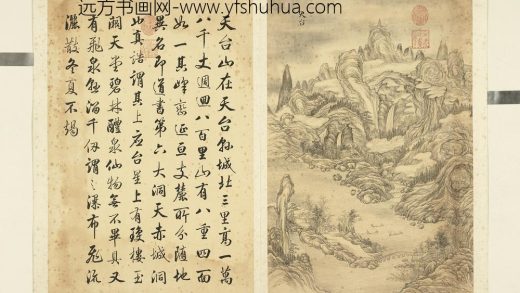 远方书画网-www.yfshuhua.com
天台
天台山在天台縣城北三里高一萬
八千丈週迴八百里山有八重四面
如一其峰巒延亘支麓所分随地
異名即道書第六大洞天赤城洞
也真誥謂其上应台星上有瓊樓玉
洞天堂碧林醴泉仙物無不畢具又
有飛泉懸溜千仞謂之瀑布飛流
灑散冬夏不竭